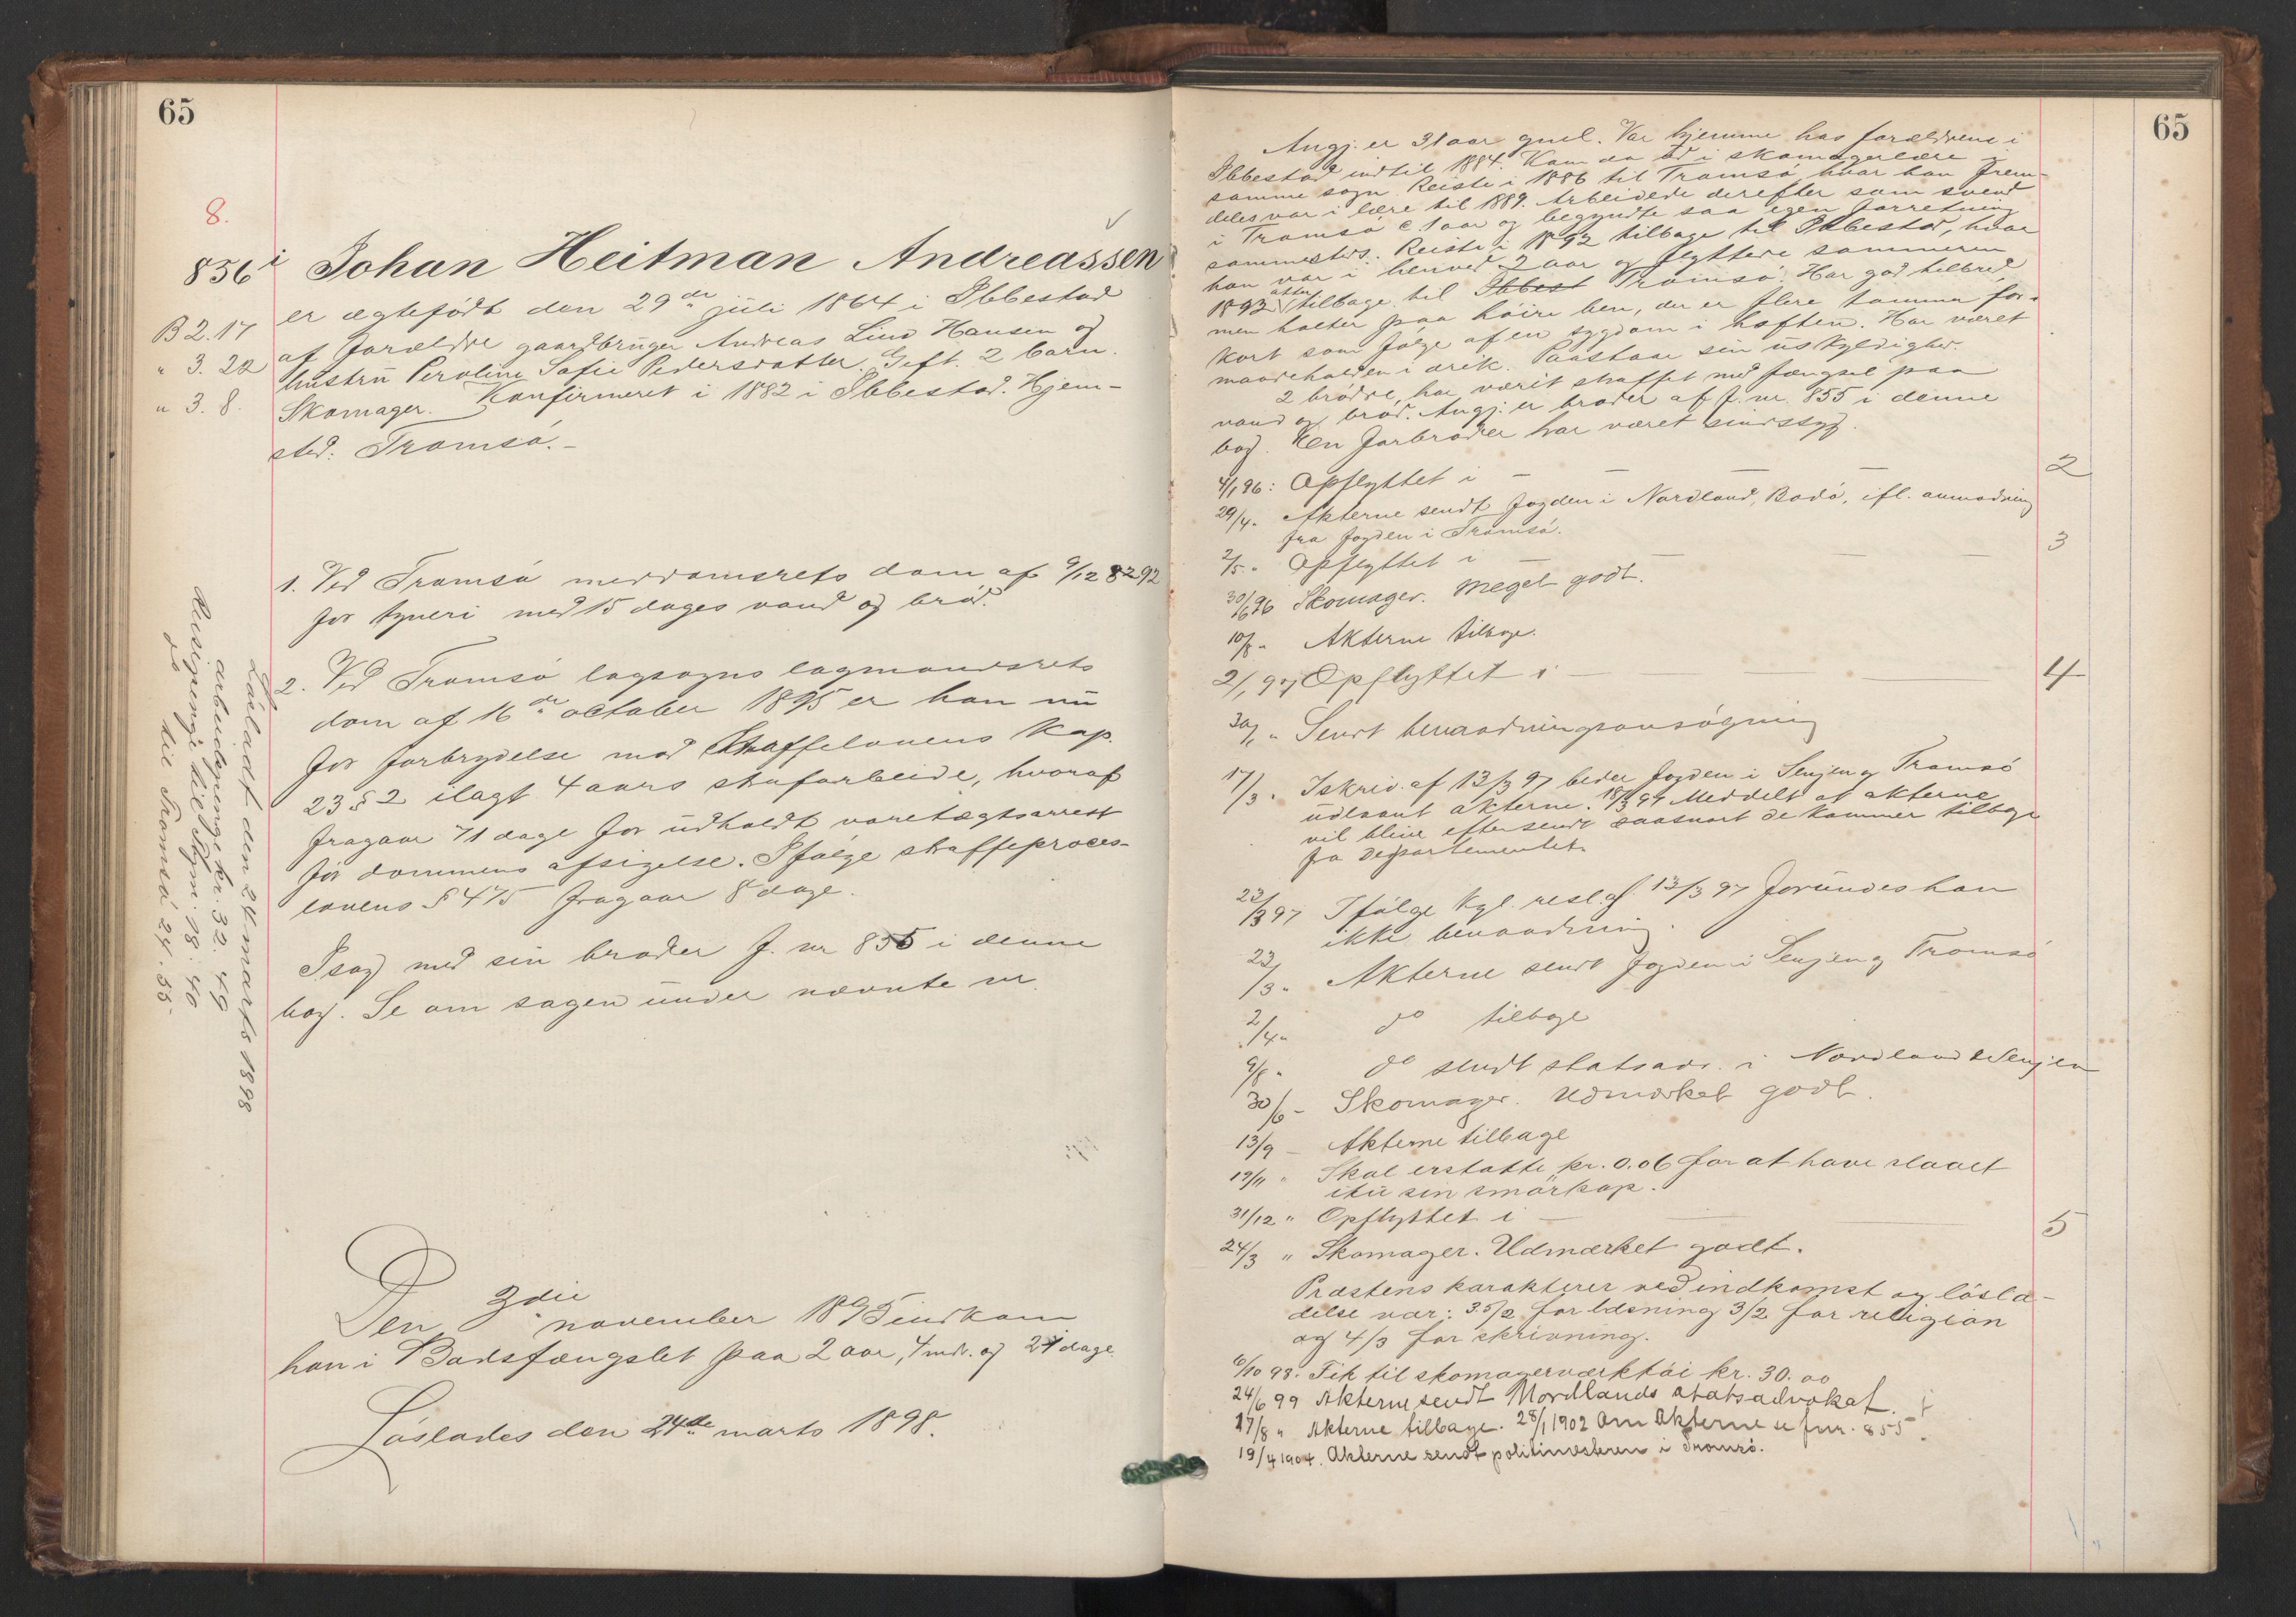 65
8.
856 i Johan Heitman Andreassen
er ægtefødt den 29de juli 1864 i Ibbestad
B 2.17
af forældre gaardbruger Andreas Lind Hansen og
" 3. 20
hustru Peroline Sofie Pedersdatter. Gift. 2 barn.
" 3. 8.
Skomager. Konfirmeret i 1882 i Ibbestad. Hjem-
sted: Tromsö. -
1. Ved Tromsö meddomsrets dom af 9/12 92
for tyveri med 15 dages vand og bröd.
2. Ved Tromsö lagsogns lagmandsrets
dom af 16de october 1895 er han nu
for forbrydelse mod Straffelovens Kap.
23 § 2 ilagt 4 aars strafarbeide, hvoraf
fragaar 71 dage for udholdt varetægtsarrest
för dommens afsigelse. Ifölge straffeproces-
lovens § 475 fragaar 8 dage.
I sag med sin broder f. nr 855 i denne
bog. Se om sagen under nævnte nr.
Lösladt den 24 marts 1898
arbeidspenge kr. 32. 49
Reisepenge til Thjm. 18: 40
do til Tromsö 24. 55.
Den 3die november 1895 indkom
han i Bodsfængslet paa 2 aar, 4 mdr. og 21 dage.
Löslades den 24de marts 1898.
65
Angj. er 31 aar gml. Var hjemme hos forældrene i
Ibbestad indtil 1884. Kom da ud i skomagerlære i
samme sogn. Reiste i 1886 til Tromsö, hvor han frem-
deles var i lære til 1889. Arbeidede derefter som svend
i Tromsö c 1 aar og begyndte saa egen forretning
sammesteds. Reiste i 1892 tilbage til Ibbestad, hvor
han var i henved 2 aar og flyttede sommeren
1893 atter tilbage til Ibbest Tromsö. Har god helbred,
men halter paa höire ben, der er flere tommer for-
kort som fölge af en sygdom i hoften. Har været
maadeholden i drik. Paastaar sin uskyldighed.
2 brödre har været straffet med fængsel paa
vand og bröd. Angj. er broder af f. nr. 855 i denne
bog. En farbroder har været sindssyg.
4/1 96: Opflyttet i - - - - 2
29/4 " Akterne sendt fogden i Nordland, Bodö, ifl. anmodning
fra fogden i Tromsö.
2/5 " Opflyttet i - - - - 3
30/6 96 Skomager. Meget godt.
10/8 " Akterne tilbage.
2/1 97 Opflyttet i - - - - 4
30/1 " Sendt benaadningsansögning
17/3 " I skriv. af 13/3 97 beder fogden i Senjen og Tromsö
udlaant akterne. 18/3 97 Meddelt at akterne
vil blive eftersendt saasnart de kommer tilbage
fra departementet.
23/3 97 Ifölge kgl. resl. af 13/3 97 forundes han
ikke benaadning.
23/3 " Akterne sendt fogden i Senjen og Tromsö
2/4 " do tilbage
9/8 " do sendt statsadv. i Nordland & Senjen
30/6 - Skomager. Udmærket godt.
13/9 - Akterne tilbage
19/11 " Skal erstatte kr. 0.06 for at have slaaet
itu sin smörkop.
31/12 " Opflyttet i - - - 5
24/3 " Skomager. Udmærket godt.
Præstens karakterer ved indkomst og lösla-
delse var: 3.5/2 for læsning 3/2 for religion
og 4/3 for skrivning.
6/10 98. Fik til skomagerværktöi kr. 30.00
24/6 99 Akterne sendt Nordlands statsadvokat.
17/8 " Akterne tilbage. 28/1 1902 Om Akterne se fnr. 855.
19/4 1904. Akterne sendt politimesteren i Tromsö.